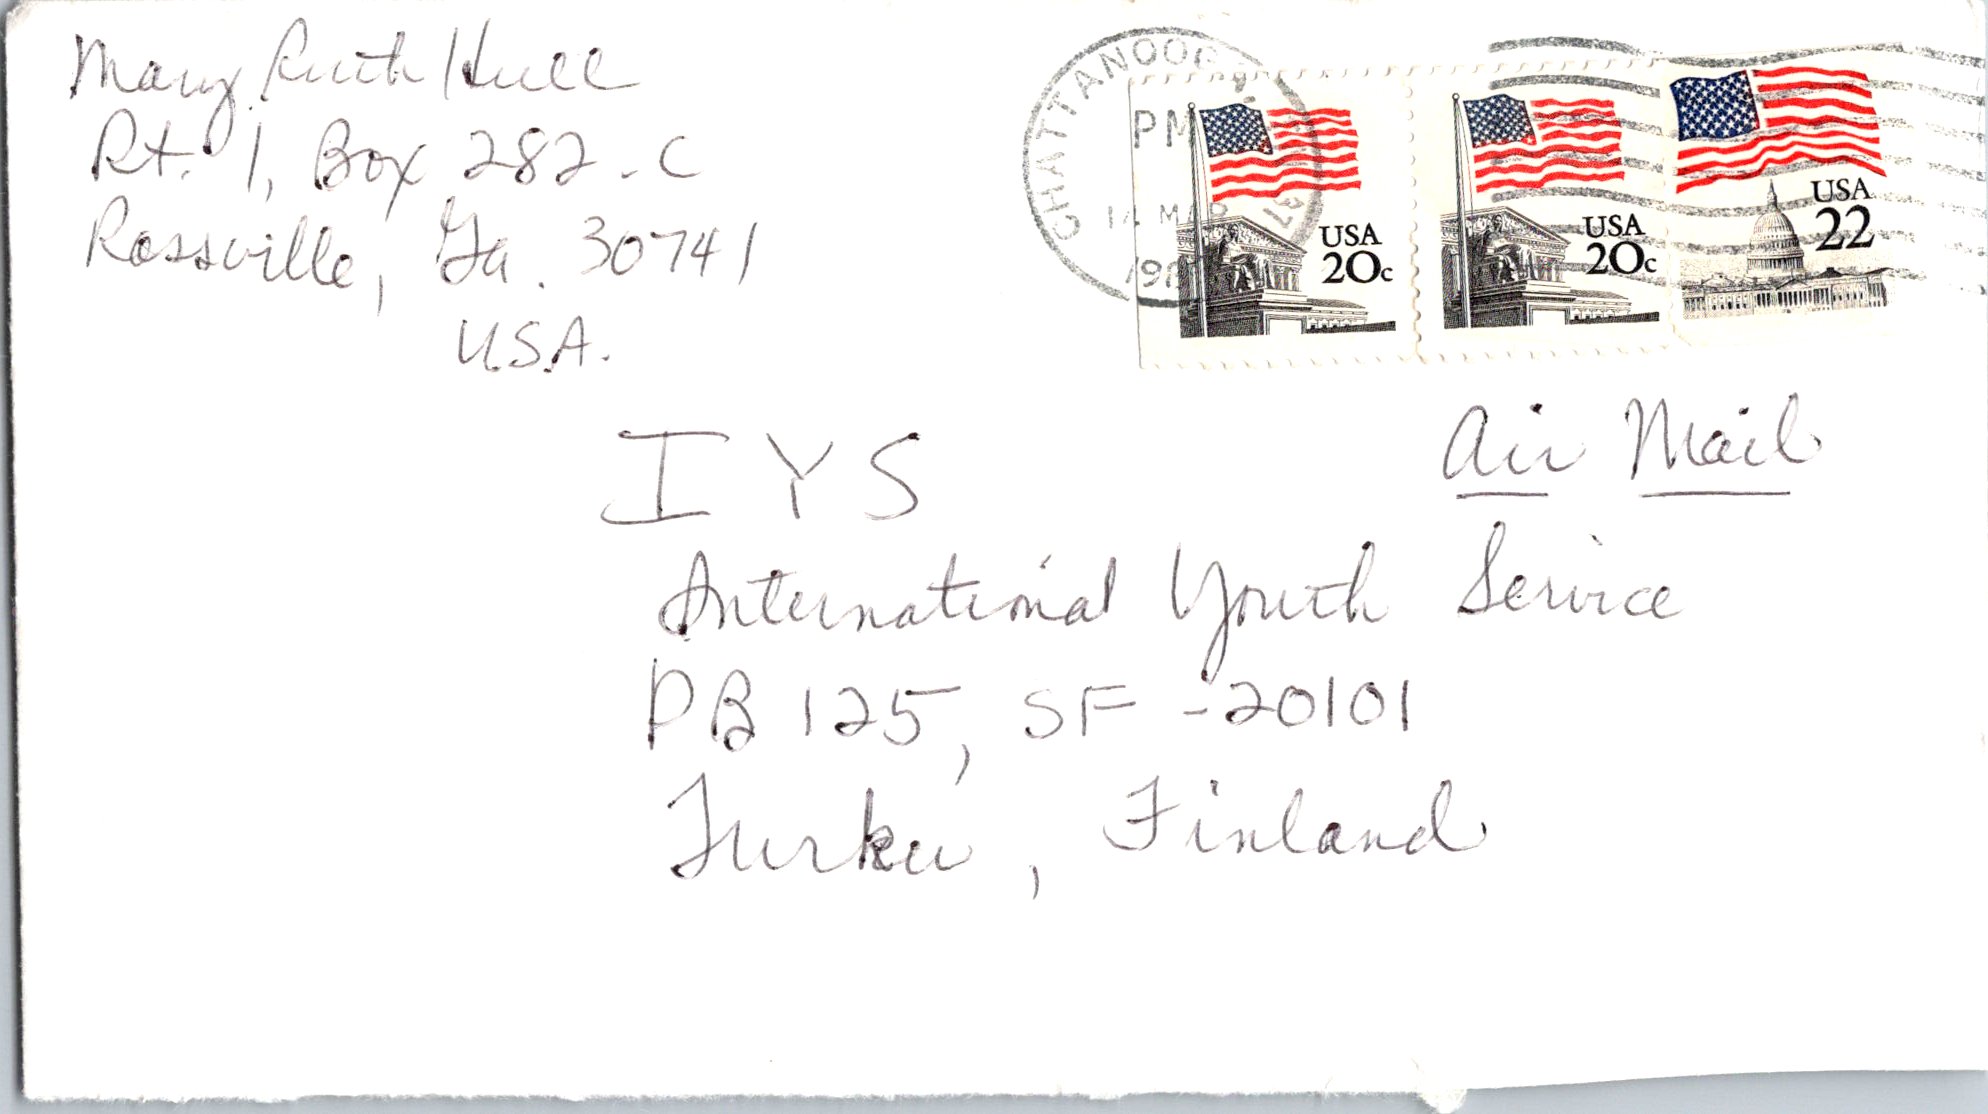 Mary Ruth Hull
Rt. 1, Box 282-C
Rossville, Ga. 30741
U.S.A.
CHATTANOOGA
PM
14 MAR
USA
20c
USA
20c
USA
22
Air Mail
IYS
International Youth Service
PB 125, SF-20101
Turku, Finland